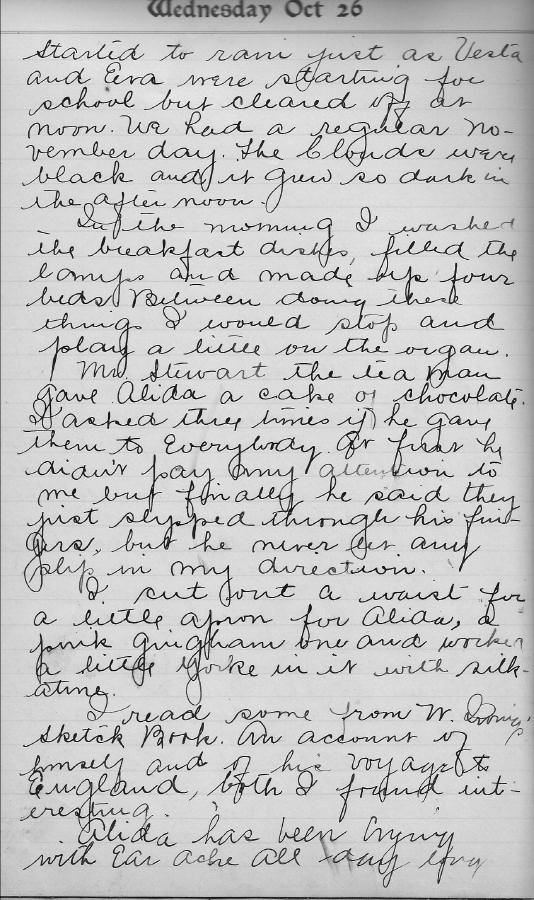 Wednesday Oct 26
started to rain just as Vesta
and Eva were starting for
school but cleared off at
noon. We had a regular No-
vember day. The Clouds were
black and it grew so dark in
the after noon.
In the morning I washed
the breakfast dishes, filled the
lamps and made up four
beds Between doing these
things I would stop and
play a little on the organ.
Mr Stewart the tea man
gave Alida a cake of chocolate.
I asked three times if he gave
them to Everybody. At first he
didn't pay any attention to
me but finally he said they
just slipped through his fin-
gers, but he never let any
slip in my direction.
I cut out a waist for
a little apron for Alida, a
pink gingham one and worked
a little yorke in it with silk-
atine.
I read some from W. Irving's
Sketck Book. An account of
himself and of his voyage to
England, both I found int-
eresting.
Alida has been crying
with Ear ache all day long